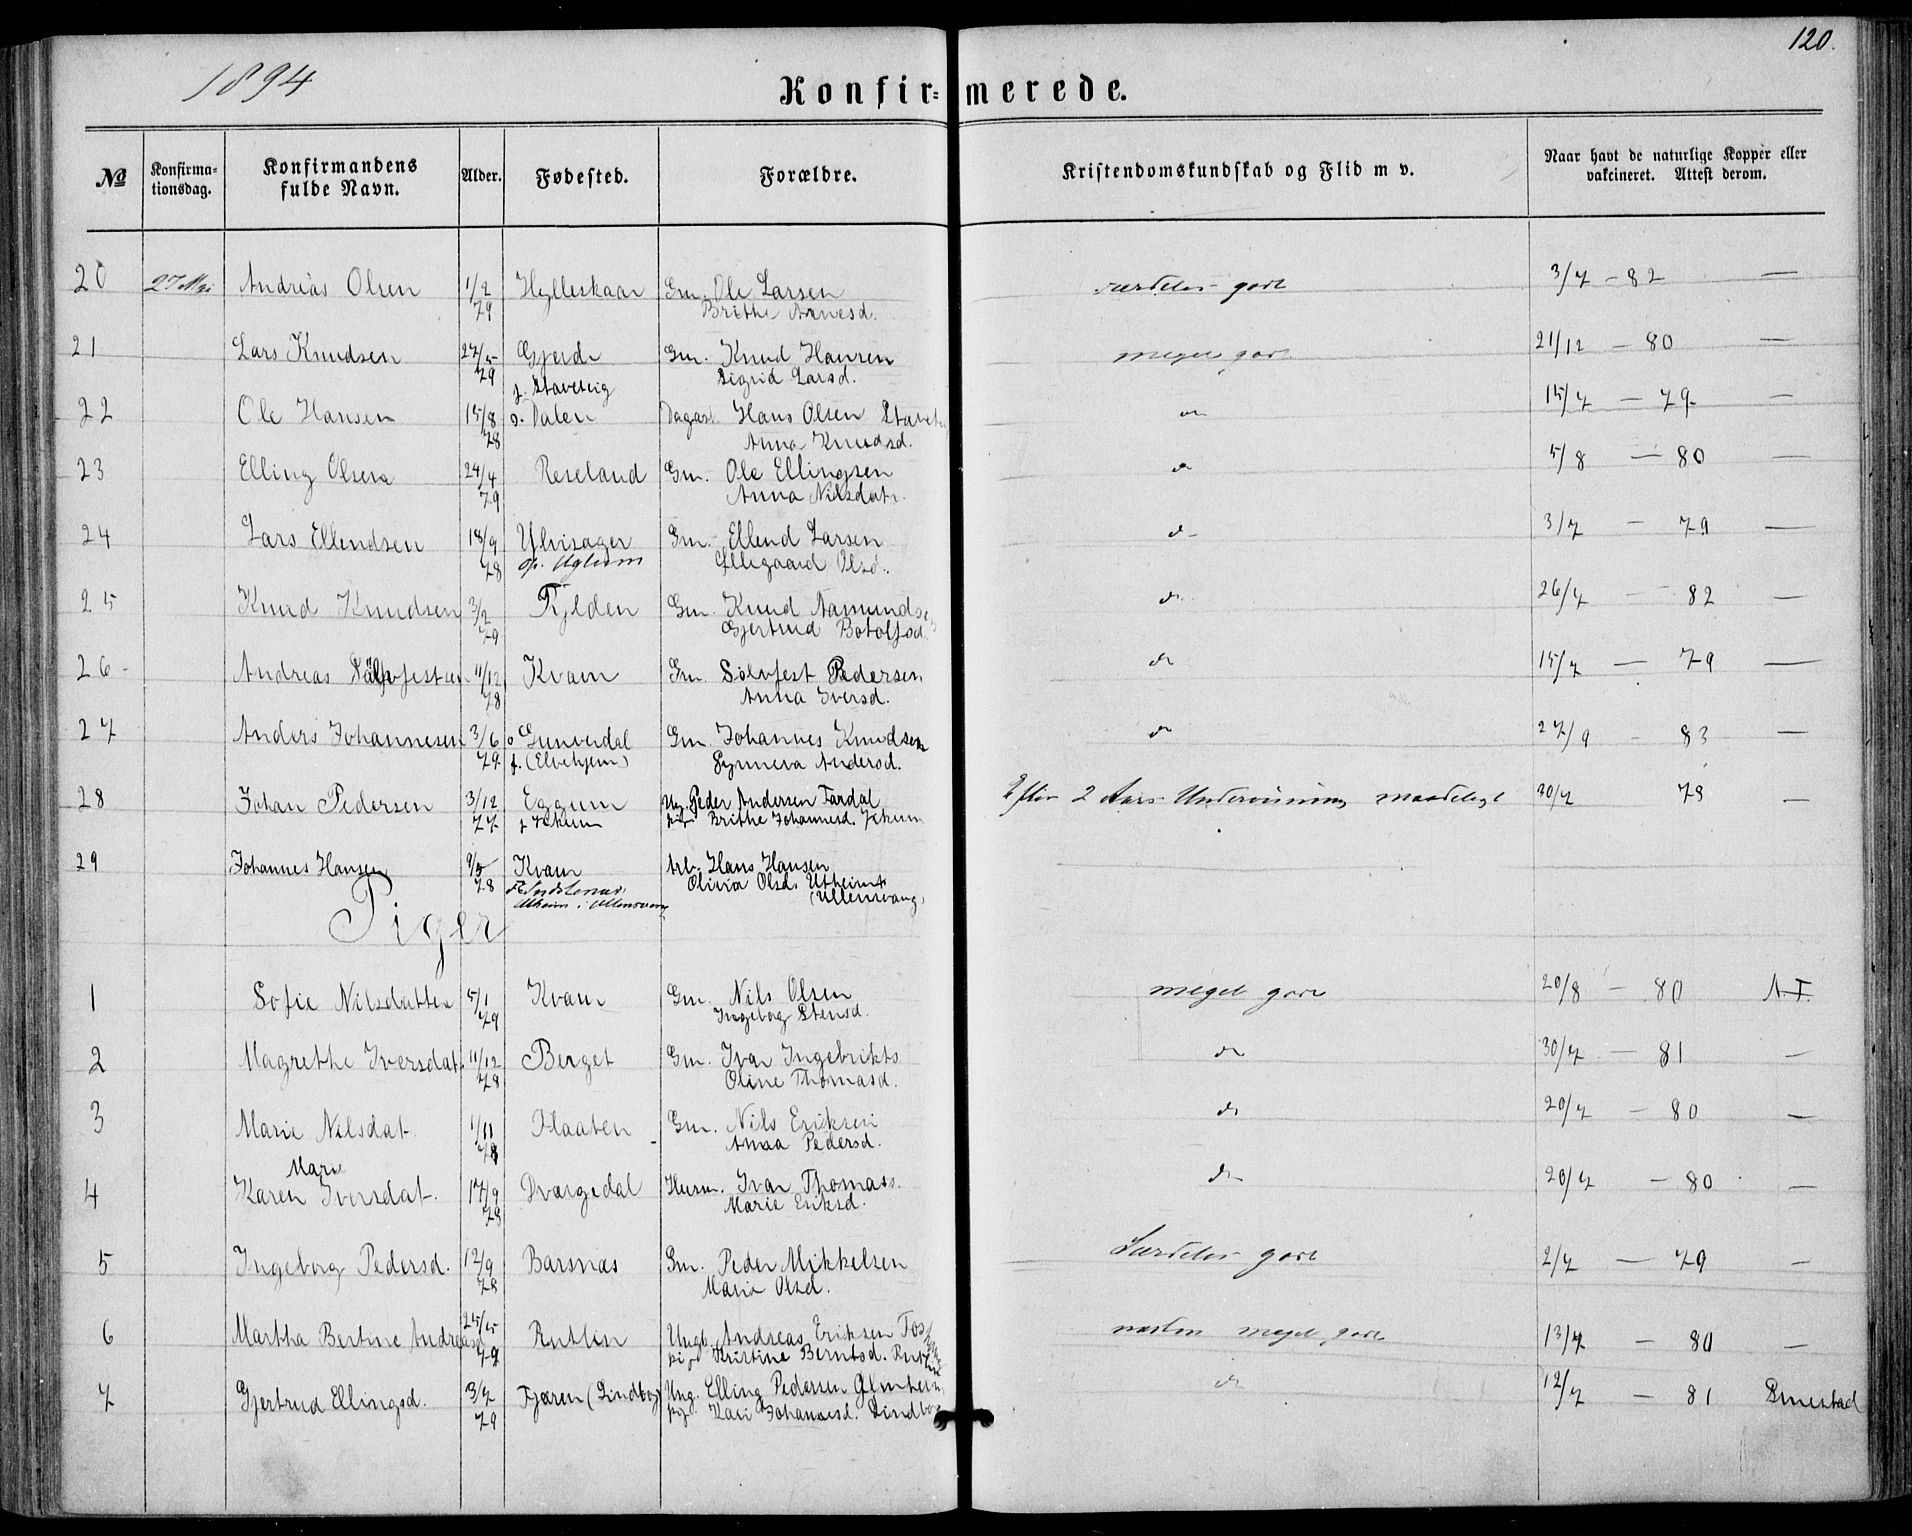 120.
1894
Konfir=merede.
No Konfirma-tionsdag. Konfirmandens fulde Navn. Alder. Fødested. Forældre. Kristendomskundskab og Flid m v. Naar havt de naturlige Kopper eller vakcineret. Attest derom.
20 27 Mai Andreas Olsen 1/2 79 Hylleskaar Gm. Ole Larsen særdeles godt 3/7 - 82 —
Brithe Arnesd.
21 Lars Knudsen 27/5 79 Gjerde Gm. Knud Hansen meget godt 21/12 - 80 —
f. Staveteig Sigrid Larsd.
22 Ole Hansen 15/8 78 o. Dalen Dagarb. Hans Olsen do 15/7 — 79 —
Anna Knudsd.
23 Elling Olsen 24/4 79 Reseland Gm. Ole Ellingsen do 5/8 — 80 —
Anna Nilsdatr.
24 Lars Ellendsen 18/9 78 Ylvisager Gm. Ellend Larsen do 3/7 — 79 —
op. Uglum Ellegaard Olsd.
25 Knud Knudsen 3/2 79 Fylden Gm. Knud Aamunds do 26/7 — 82 —
Gjertrud Botolfsd.
26 Andreas Sølvfestsen 11/12 78 Kvam Gm. Sølvfest Pedersen do 15/7 — 79 —
Anna Iversd.
27 Anders Johannesen 3/6 79 o Gunverdal Gm. Johannes Knudsen do 27/9 - 83 —
f. (Elvehjem) Synneva Andersd.
28 Johan Pedersen 3/12 77 Eggum Ug. Peder Andersen Fardal Efter 2 Aars Undervisning maadeligt 30/7 78 —
pig. Brithe Johannesd.
29 Johannes Hansen 9/5 78 Kvam Arb. Hans Hansen
Utheim i Ullensvang Olivia Olsd. Utheim (Ullensvang)
Piger
1 Sofie Nilsdatter 5/1 79 Kvam Gm. Nils Olsen meget godt 20/8 — 80 A.T.
Ingeborg Stensd.
2 Magrethe Iversdat. 11/12 78 Berget Gm. Ivar Ingebrikts do 30/7 — 81 —
Oline Thomasd.
3 Marie Nilsdat. 1/11 78 Haaten Gm. Nils Eriksen do 20/7 — 80 —
Anna Pedersd.
Marie
4 Karen Iversdat. 17/9 78 Dvergedal Husm. Ivar Thomass. do 20/7 — 80 —
Marie Eriksd.
5 Ingeborg Pedersd. 12/9 78 Barsnæs Gm. Peder Mikkelsen Særdeles godt 2/7 — 79 —
Marie Olsd.
6 Martha Bertine Andreasd 25/5 79 Rutlin Ungk. Andreas Eriksen næsten meget godt 13/7 — 80 —
pige Kristine Berntsd. Rutlin
7 Gjertrud Ellingsd. 3/7 79 Fjæren (Lindborg) Ung. Elling Pedersen do 12/7 — 81
pig. Kari Johannesd. Lindborg